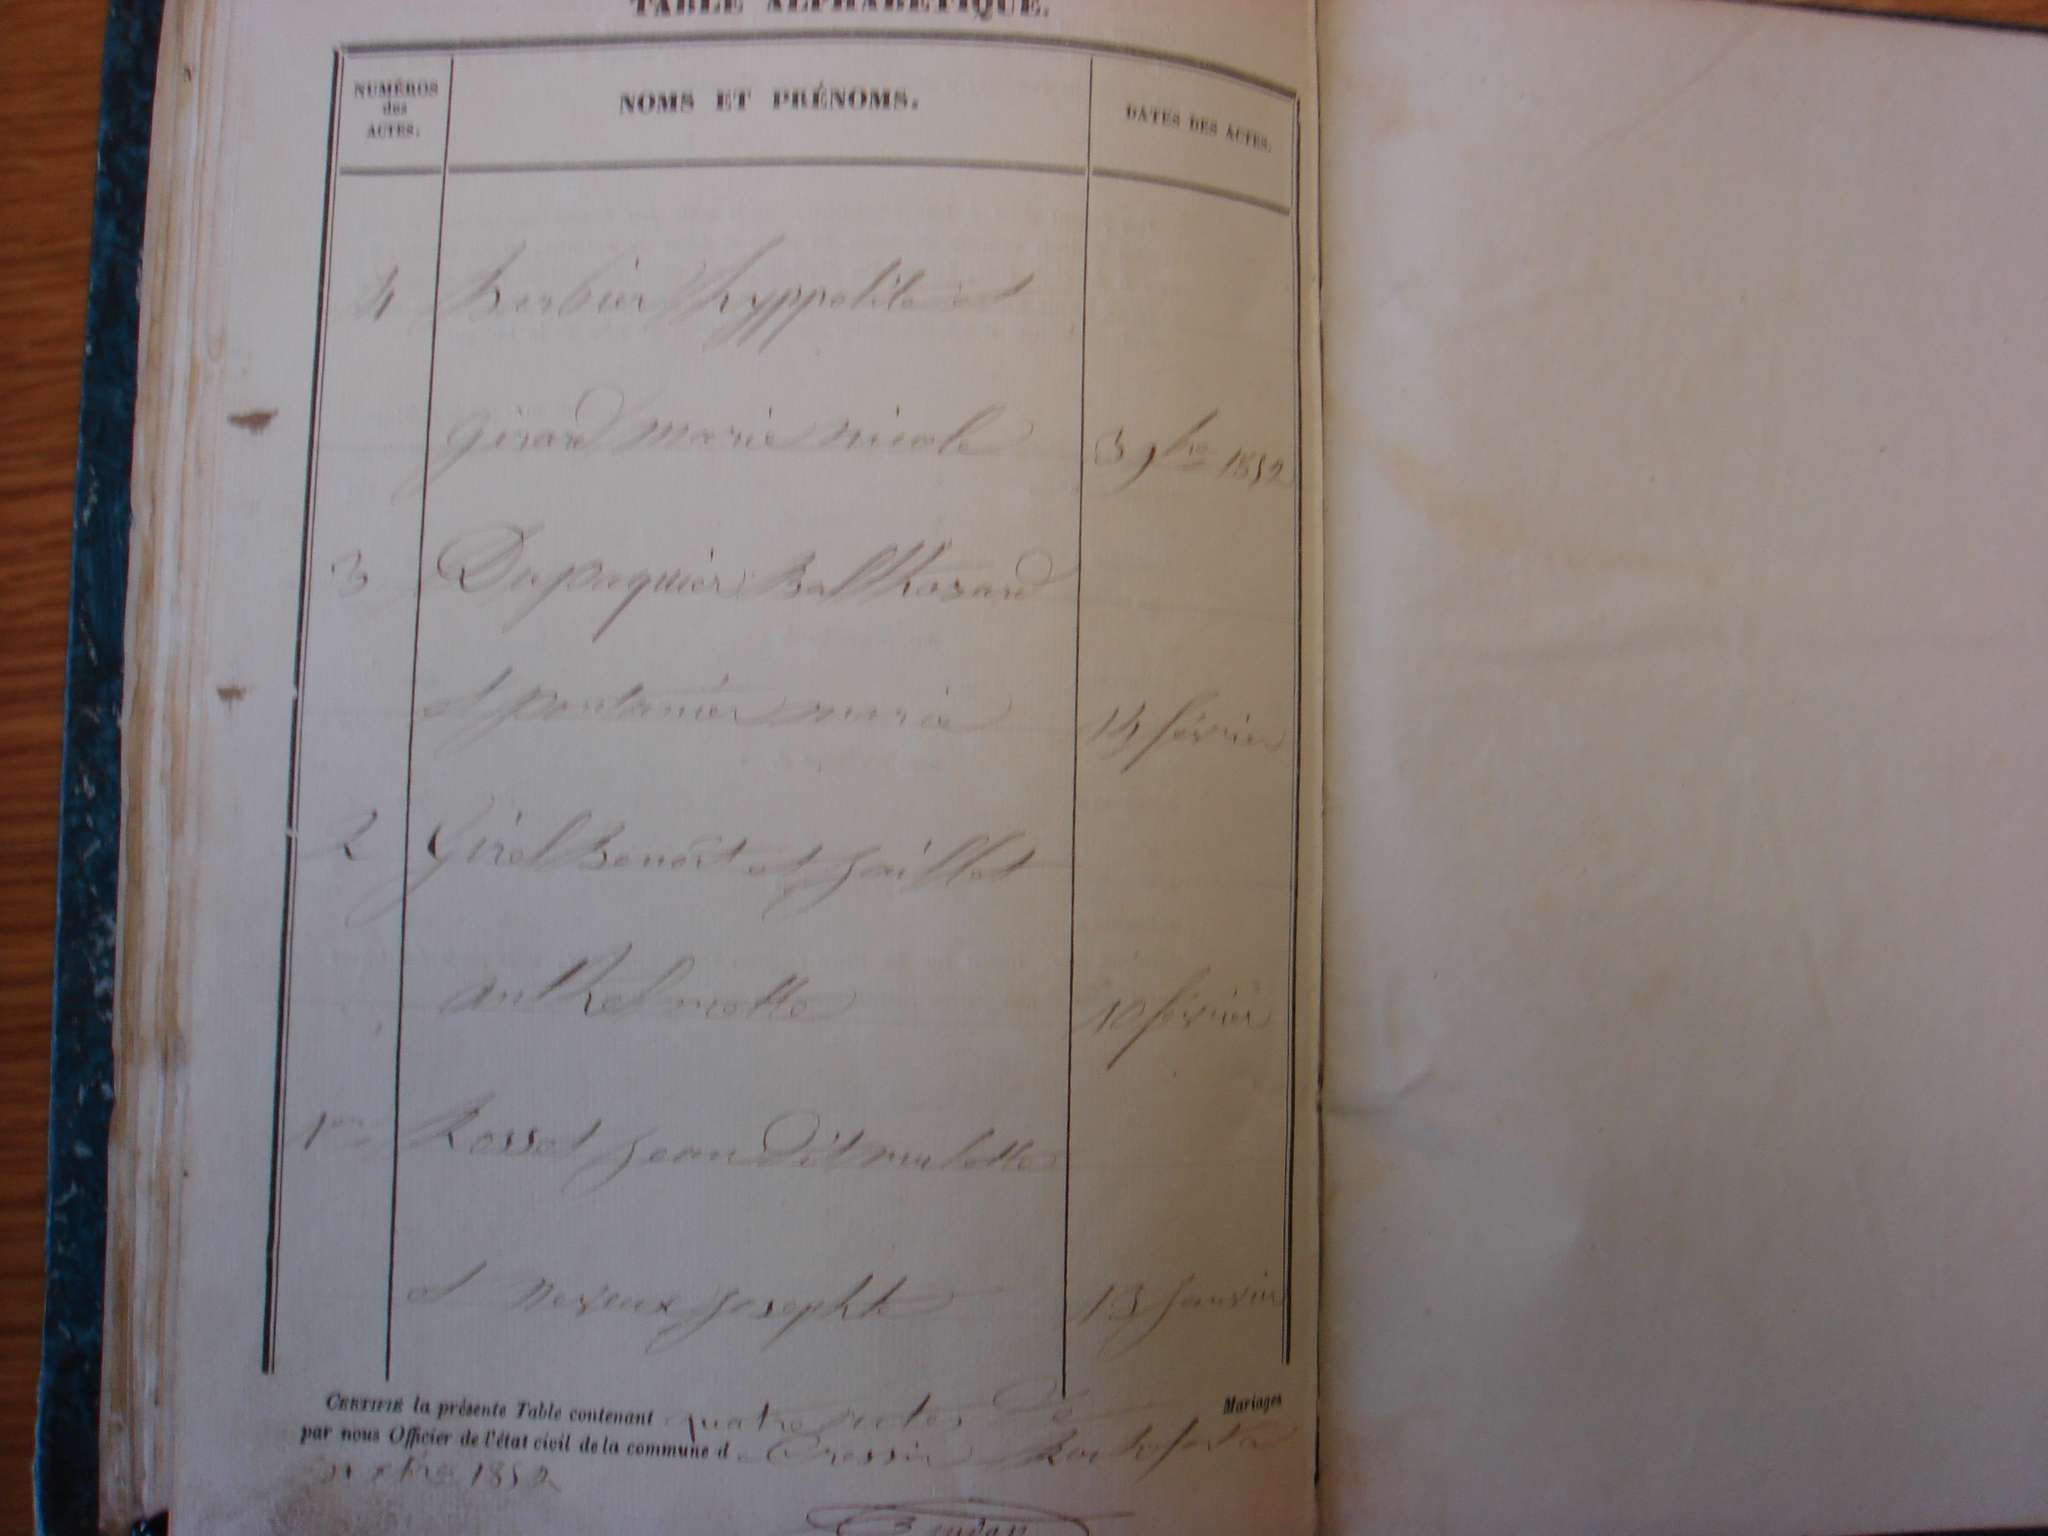 TABLE ALPHABÉTIQUE.
NUMÉROS
des
ACTES.
NOMS ET PRÉNOMS.
DATES DES ACTES.
4 berbier hyppolite et
girard marie nicole 3 9bre 1852
3 Dupaquier Balthazard
et pantanier marie 14 février
2 Girel Benoit et jaillet
anthelmette 10 février
1er Rosset jean dit mulette
et neveux josephte 13 janvier
CERTIFIÉ la présente Table contenant quatre actes de Mariages
par nous Officier de l'état civil de la commune de Cressin Rochefort
xbre 1852